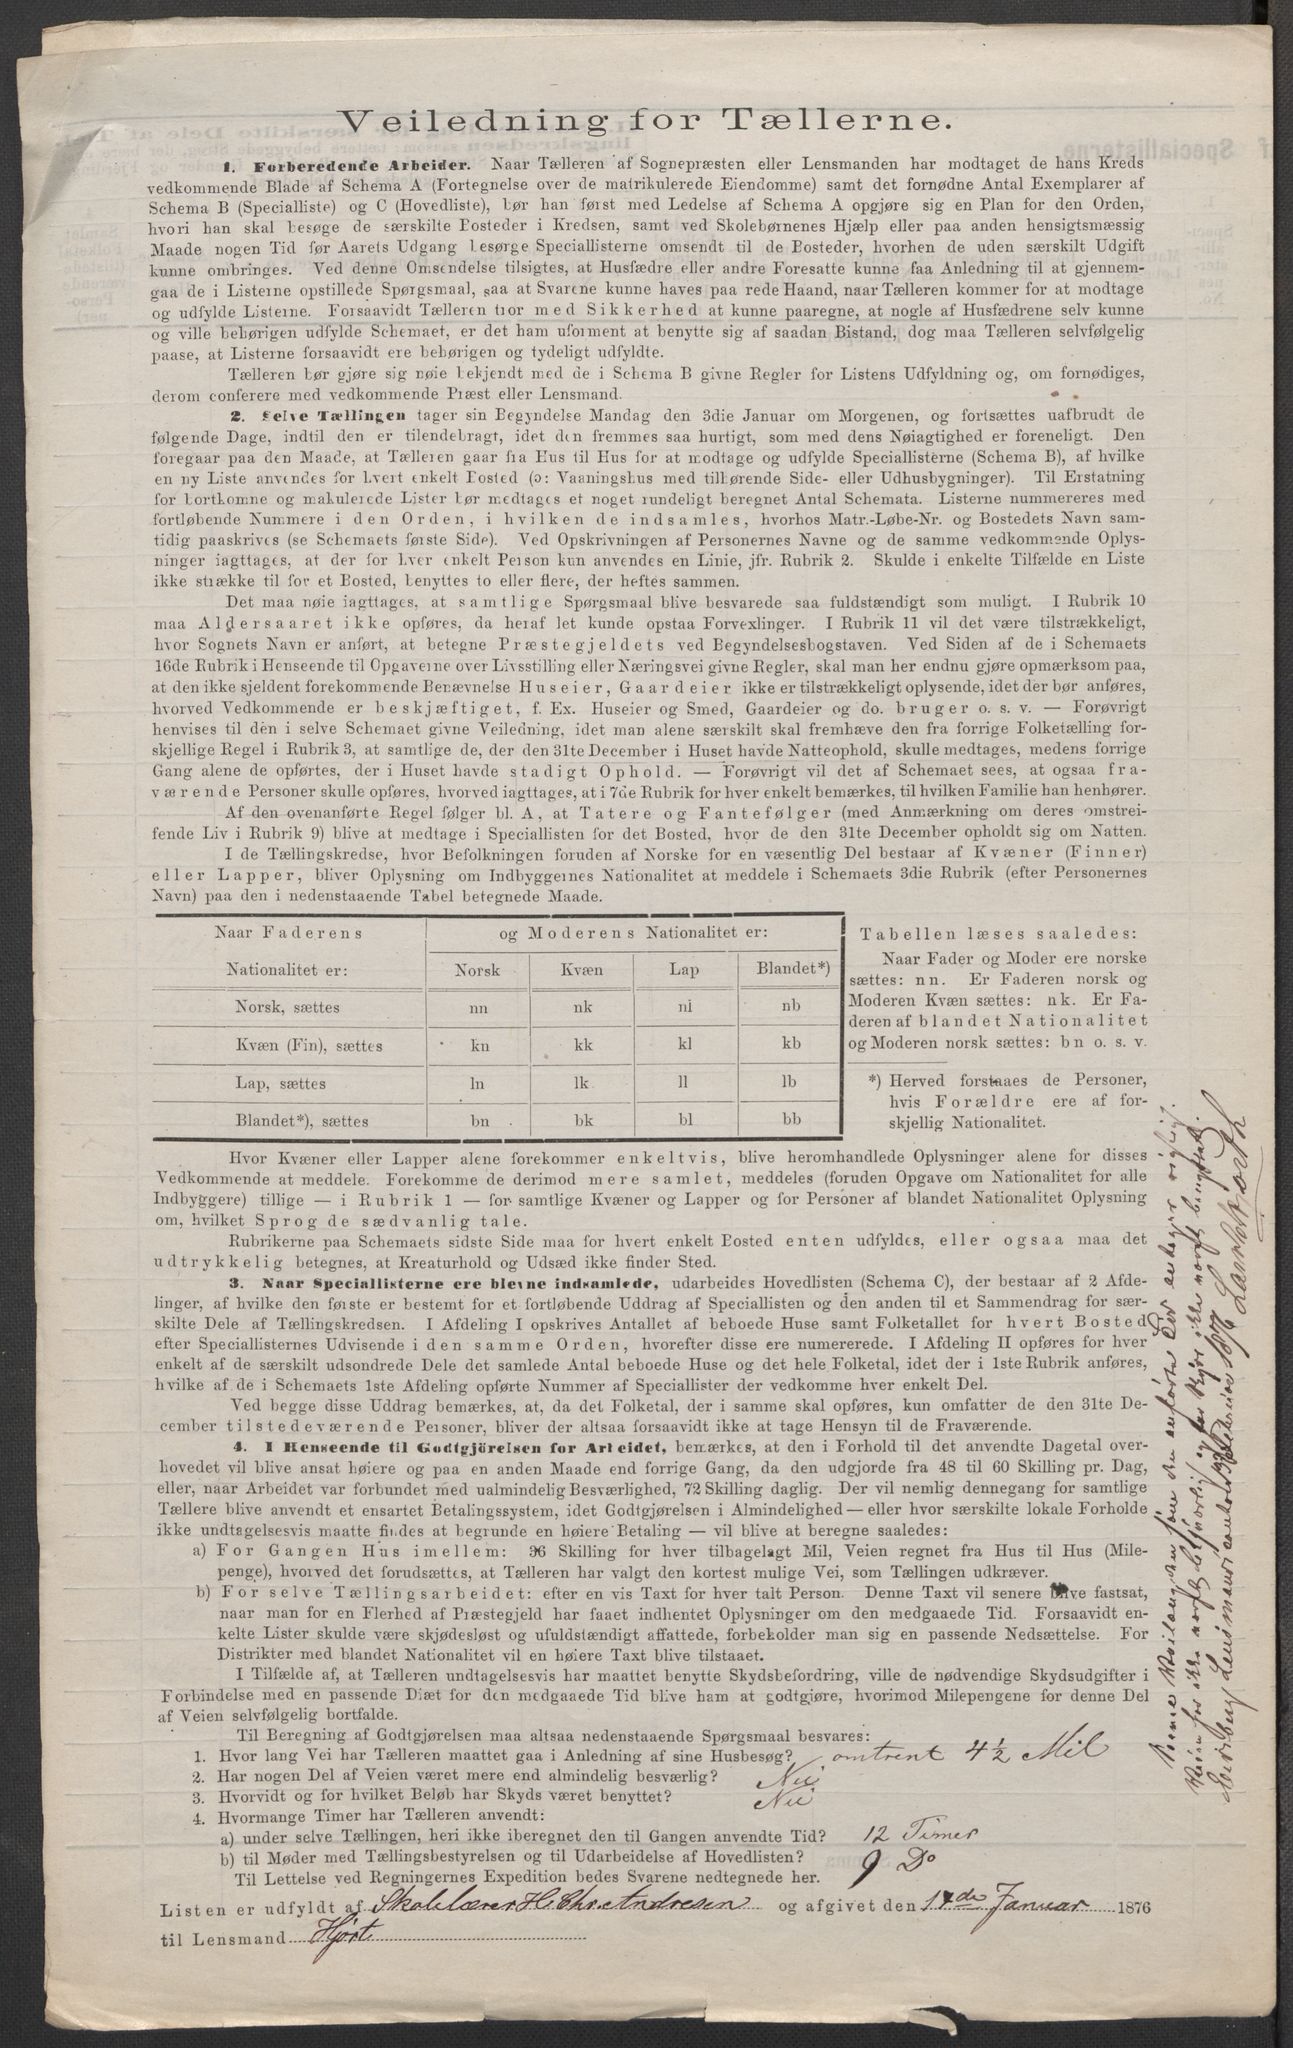 Veiledning for Tællerne.
1. Forberedende Arbeider. Naar Tælleren af Sognepræsten eller Lensmanden har modtaget de hans Kreds
vedkommende Blade af Schema A (Fortegnelse over de matrikulerede Eiendomme) samt det fornødne Antal Exemplarer af
Schema B (Specialliste) og C (Hovedliste), bør han først med Ledelse af Schema A opgjøre sig en Plan for den Orden,
hvori han skal besøge de særskilte Bosteder i Kredsen, samt ved Skolebørnenes Hjælp eller paa anden hensigtsmæssig
Maade nogen Tid før Aarets Udgang besørge Speciallisterne omsendt til de Bosteder, hvorhen de uden særskilt Udgift
kunne ombringes. Ved denne Omsendelse tilsigtes, at Husfædre eller andre Foresatte kunne faa Anledning til at gjennem-
gaa de i Listerne opstillede Spørgsmaal, saa at Svarene kunne haves paa rede Haand, naar Tælleren kommer for at modtage
og udfylde Listerne. Forsaavidt Tælleren tror med Sikkerhed at kunne paaregne, at nogle af Husfædrene selv kunne
og ville behørigen udfylde Schemaet, er det ham uforment at benytte sig af saadan Bistand, dog maa Tælleren selvfølgelig
paase, at Listerne forsaavidt ere behørigen og tydeligt udfyldte.
Tælleren bør gjøre sig nøie bekjendt med de i Schema B givne Regler for Listens Udfyldning og, om fornødiges,
derom conferere med vedkommende Præst eller Lensmand.
2. Selve Tællingen tager sin Begyndelse Mandag den 3die Januar om Morgenen, og fortsættes uafbrudt de
følgende Dage, indtil den er tilendebragt, idet den fremmes saa hurtigt, som med dens Nøiagtighed er foreneligt. Den
foregaar paa den Maade, at Tælleren gaar fra Hus til Hus for at modtage og udfylde Speciallisterne (Schema B), af hvilke
en ny Liste anvendes for hvert enkelt Bosted (ɔ: Vaaningshus med tilhørende Side- eller Udhusbygninger). Til Erstatning
for bortkomne og makulerede Lister bør medtages et noget rundeligt beregnet Antal Schemata. Listerne nummereres med
fortløbende Nummere i den Orden, i hvilken de indsamles, hvorhos Matr.-Løbe-Nr. og Bostedets Navn sam-
tidig paaskrives (se Schemaets første Side). Ved Opskrivningen af Personernes Navne og de samme vedkommende Oplys-
ninger iagttages, at der for hver enkelt Person kun anvendes en Linie, jfr. Rubrik 2. Skulde i enkelte Tilfælde en Liste
ikke strække til for et Bosted, benyttes to eller flere, der heftes sammen.
Det maa nøie iagttages, at samtlige Spørgsmaal blive besvarede saa fuldstændigt som muligt. I Rubrik 10
maa Aldersaaret ikke opføres, da heraf let kunde opstaa Forvexlinger. I Rubrik 11 vil det være tilstrækkeligt,
hvor Sognets Navn er anført, at betegne Præstegjeldets ved Begyndelsesbogstaven. Ved Siden af de i Schemaets
16de Rubrik i Henseende til Opgaverne over Livsstilling eller Næringsvei givne Regler, skal man her endnu gjøre opmærksom paa,
at den ikke sjeldent forekommende Benævnelse Huseier, Gaardeier ikke er tilstrækkeligt oplysende, idet der bør anføres,
hvorved Vedkommende er beskjæftiget, f. Ex. Huseier og Smed, Gaardeier og do. bruger o. s. v. — Forøvrigt
henvises til den i selve Schemaet givne Veiledning, idet man alene særskilt skal fremhæve den fra forrige Folketælling for-
skjellige Regel i Rubrik 3, at samtlige de, der den 31te December i Huset havde Natteophold, skulle medtages, medens forrige
Gang alene de opførtes, der i Huset havde stadigt Ophold. — Forøvrigt vil det af Schemaet sees, at ogsaa fra-
værende Personer skulle opføres, hvorved iagttages, at i 7de Rubrik for hver enkelt bemærkes, til hvilken Familie han henhører.
Af den ovenanførte Regel følger bl. A, at Tatere og Fantefølger (med Anmærkning om deres omstrei-
fende Liv i Rubrik 9) blive at medtage i Speciallisten for det Bosted, hvor de den 31te December opholdt sig om Natten.
I de Tællingskredse, hvor Befolkningen foruden af Norske for en væsentlig Del bestaar af Kvæner (Finner)
eller Lapper, bliver Oplysning om Indbyggernes Nationalitet at meddele i Schemaets 3die Rubrik (efter Personernes
Navn) paa den i nedenstaaende Tabel betegnede Maade.
Naar Faderens og Moderens Nationalitet er:
Nationalitet er: Norsk Kvæn Lap Blandet*)
Norsk, sættes nn nk nl nb
Kvæn (Fin), sættes kn kk kl kb
Lap, sættes ln lk ll lb
Blandet*), sættes bn bk bl bb
Tabellen læses saaledes:
Naar Fader og Moder ere norske
sættes: nn. Er Faderen norsk og
Moderen Kvæn sættes: nk. Er Fa-
deren af blandet Nationalitet
og Moderen norsk sættes: bn o. s. v.
*) Herved forstaaes de Personer,
hvis Forældre ere af for-
skjellig Nationalitet.
Hvor Kvæner eller Lapper alene forekommer enkeltvis, blive heromhandlede Oplysninger alene for disses
Vedkommende at meddele. Forekomme de derimod mere samlet, meddeles (foruden Opgave om Nationalitet for alle
Indbyggere) tillige — i Rubrik 1 — for samtlige Kvæner og Lapper og for Personer af blandet Nationalitet Oplysning
om, hvilket Sprog de sædvanlig tale.
Rubrikerne paa Schemaets sidste Side maa for hvert enkelt Bosted enten udfyldes, eller ogsaa maa det
udtrykkelig betegnes, at Kreaturhold og Udsæd ikke finder Sted.
3. Naar Speciallisterne ere blevne indsamlede, udarbeides Hovedlisten (Schema C), der bestaar af 2 Afde-
linger, af hvilke den første er bestemt for et fortløbende Uddrag af Speciallisten og den anden til et Sammendrag for sær-
skilte Dele af Tællingskredsen. I Afdeling I opskrives Antallet af beboede Huse samt Folketallet for hvert Bosted
efter Speciallisternes Udvisende i den samme Orden, hvorefter disse ere numererede. I Afdeling II opføres for hver
enkelt af de særskilt udsondrede Dele det samlede Antal beboede Huse og det hele Folketal, idet der i 1ste Rubrik anføres,
hvilke af de i Schemaets 1ste Afdeling opførte Nummer af Speciallister der vedkomme hver enkelt Del.
Ved begge disse Uddrag bemærkes, at, da det Folketal, der i samme skal opføres, kun omfatter de den 31te De-
cember tilstedeværende Personer, bliver der altsaa forsaavidt ikke at tage Hensyn til de Fraværende.
4. I Henseende til Godtgjörelsen for Arbeidet, bemærkes, at den i Forhold til det anvendte Dagetal over-
hovedet vil blive ansat høiere og paa en anden Maade end forrige Gang, da den udgjorde fra 48 til 60 Skilling pr. Dag,
eller, naar Arbeidet var forbundet med ualmindelig Besværlighed, 72 Skilling daglig. Der vil nemlig dennegang for samtlige
Tællere blive anvendt et ensartet Betalingssystem, idet Godtgjørelsen i Almindelighed — eller hvor særskilte lokale Forholde
ikke undtagelsesvis maatte findes at begrunde en høiere Betaling — vil blive at beregne saaledes:
a) For Gangen Hus imellem: 36 Skilling for hver tilbagelagt Mil, Veien regnet fra Hus til Hus (Mile-
penge), hvorved det forudsættes, at Tælleren har valgt den kortest mulige Vei, som Tællingen udkræver.
b) For selve Tællingsarbeidet: efter en vis Taxt for hver talt Person. Denne Taxt vil senere blive fastsat,
naar man for en Flerhed af Præstegjeld har faaet indhentet Oplysninger om den medgaaede Tid. Forsaavidt en-
kelte Lister skulde være skjødesløst og ufuldstændigt affattede, forbeholder man sig en passende Nedsættelse. For
Distrikter med blandet Nationalitet vil en høiere Taxt blive tilstaaet.
I Tilfælde af, at Tælleren undtagelsesvis har maattet benytte Skydsbefordring, ville de nødvendige Skydsudgifter i
Forbindelse med en passende Diæt for den medgaaede Tid blive ham at godtgjøre, hvorimod Milepengene for denne Del
af Veien selvfølgelig bortfalde.
Til Beregning af Godtgjørelsen maa altsaa nedenstaaende Spørgsmaal besvares:
1. Hvor lang Vei har Tælleren maattet gaa i Anledning af sine Husbesøg? omtrent 4½ Mil
2. Har nogen Del af Veien været mere end almindelig besværlig? Nei
3. Hvorvidt og for hvilket Beløb har Skyds været benyttet? Nei
4. Hvormange Timer har Tælleren anvendt:
a) under selve Tællingen, heri ikke iberegnet den til Gangen anvendte Tid? 12 Timer
b) til Møder med Tællingsbestyrelsen og til Udarbeidelse af Hovedlisten? 9 Do
Til Lettelse ved Regningernes Expedition bedes Svarene nedtegnede her.
Listen er udfyldt af Skolelærer H. Chr. Andresen og afgivet den 17de Januar 1876
til Lensmand Hjort
Veilængden
den anførte antages rigtig.
Veien
ikke
benyttet.
Eidsberg Lensmandscontor
1876